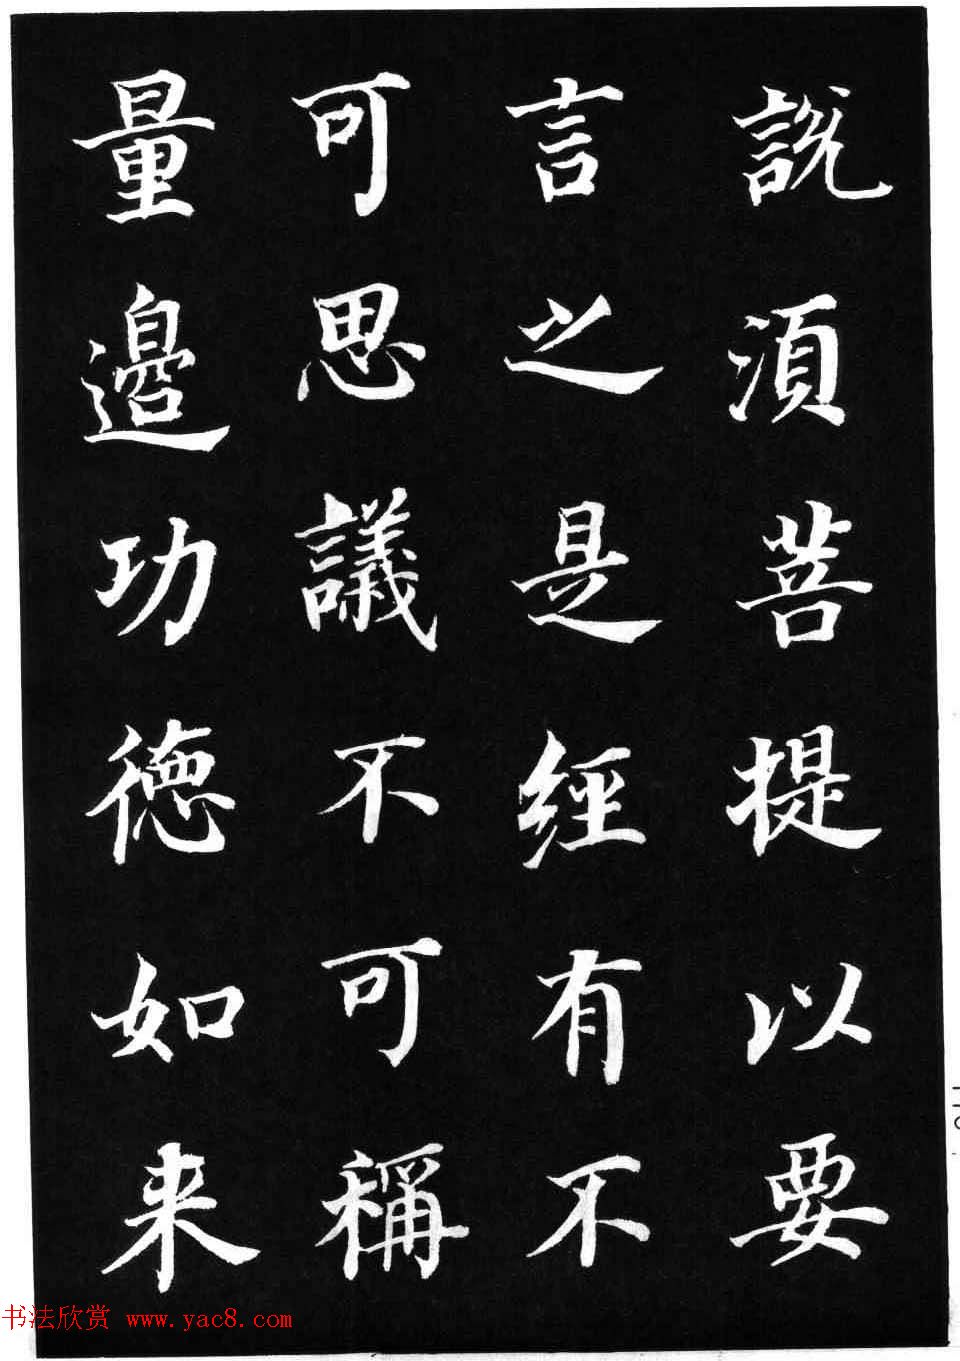 說湏菩提以要
言之是經有不
可思議不可稱
量邉功徳如来
书法欣赏 www.yac8.com